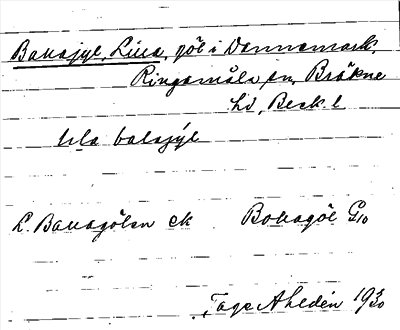 Bonagyl, Lilla, göl i Dannemark,
Ringamåla sn, Bräkne
hd, Blek. l
lila bolajýl
L. Bonagölen ek Bonagöl G10
Tage Ahldén 19 30